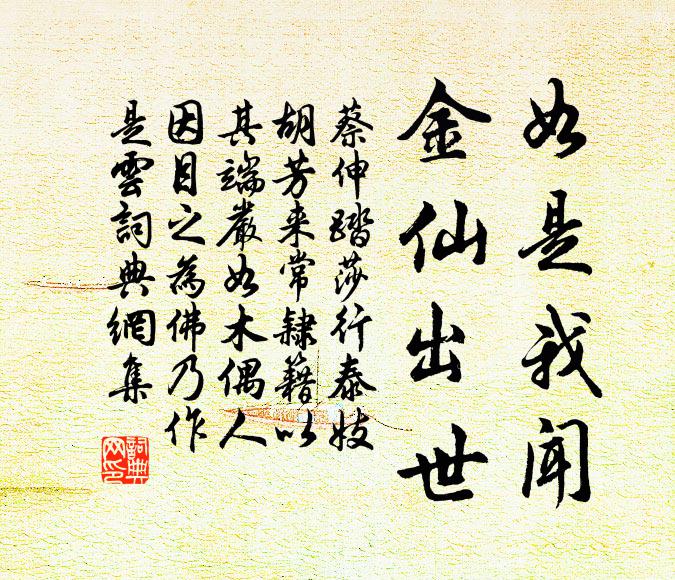 如是我闻
金仙出世
蔡伸踏莎行泰妓
胡芳来常隸籍以
其端嚴如木偶人
因目之為佛乃作
是雲詞典網集
詞典网印